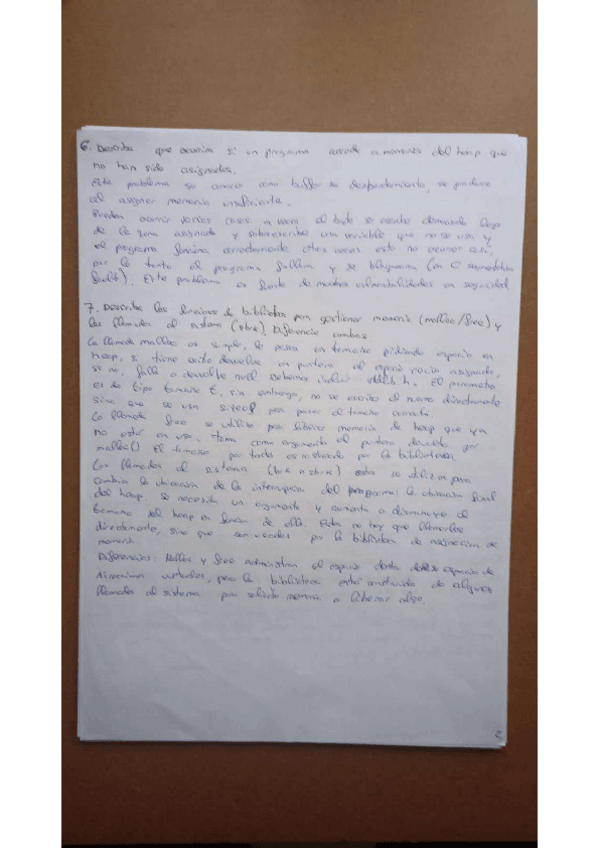 6. Describe que ocurriría si un programa accede a memoria del heap que
no han sido asignadas.
Este problema se conoce como buffer de desbordamiento, se produce
al asignar memoria insuficiente.
Pueden ocurrir varios casos: a veces al byte se escribe demasiado lejos
de la zona asignada y sobreescribe una variable que no se usa y
el programa funciona correctamente otras veces esto no ocurre así,
por lo tanto el programa fallara y se bloqueara (en C segmentation
fault). Este problema es fuente de muchas vulnerabilidades en seguridad
7. Describe las funciones de biblioteca para gestionar memoria (malloc/free) y
las llamadas al sistema (sbrk). Diferencia ambas
La llamada malloc es simple, le pasas un tamaño pidiendo espacio en
heap, si tiene exito devuelve un puntero al espacio vacio asignado,
si no, falla y devuelve null debemos incluir stdlib.h. El parametro
es de tipo tamaño t, sin embargo, no se escribe el numero directamente
sino que se usa sizeof para pasar el tamaño correcto.
La llamada free se utiliza para liberar memoria de heap que ya
no está en uso. Toma como argumento el puntero devuelto por
malloc() El tamaño por tanto es rastreado por la biblioteca
Las llamadas al sistema (brk o sbrk) estas se utilizan para
cambiar la ubicación de la interrupcion del programa: la ubicación final
del heap, se necesita un argumento y aumenta o disminuye el
tamaño del heap en función de ella. Estas no hay que llamarlas
directamente, sino que son usadas por la biblioteca de asignacion de
memoria
Diferencias: Malloc y free administran el espacio dentro del espacio de
direcciones virtuales, pero la biblioteca está construida de algunas
llamadas al sistema para solicitar memoria o liberar algo.
2